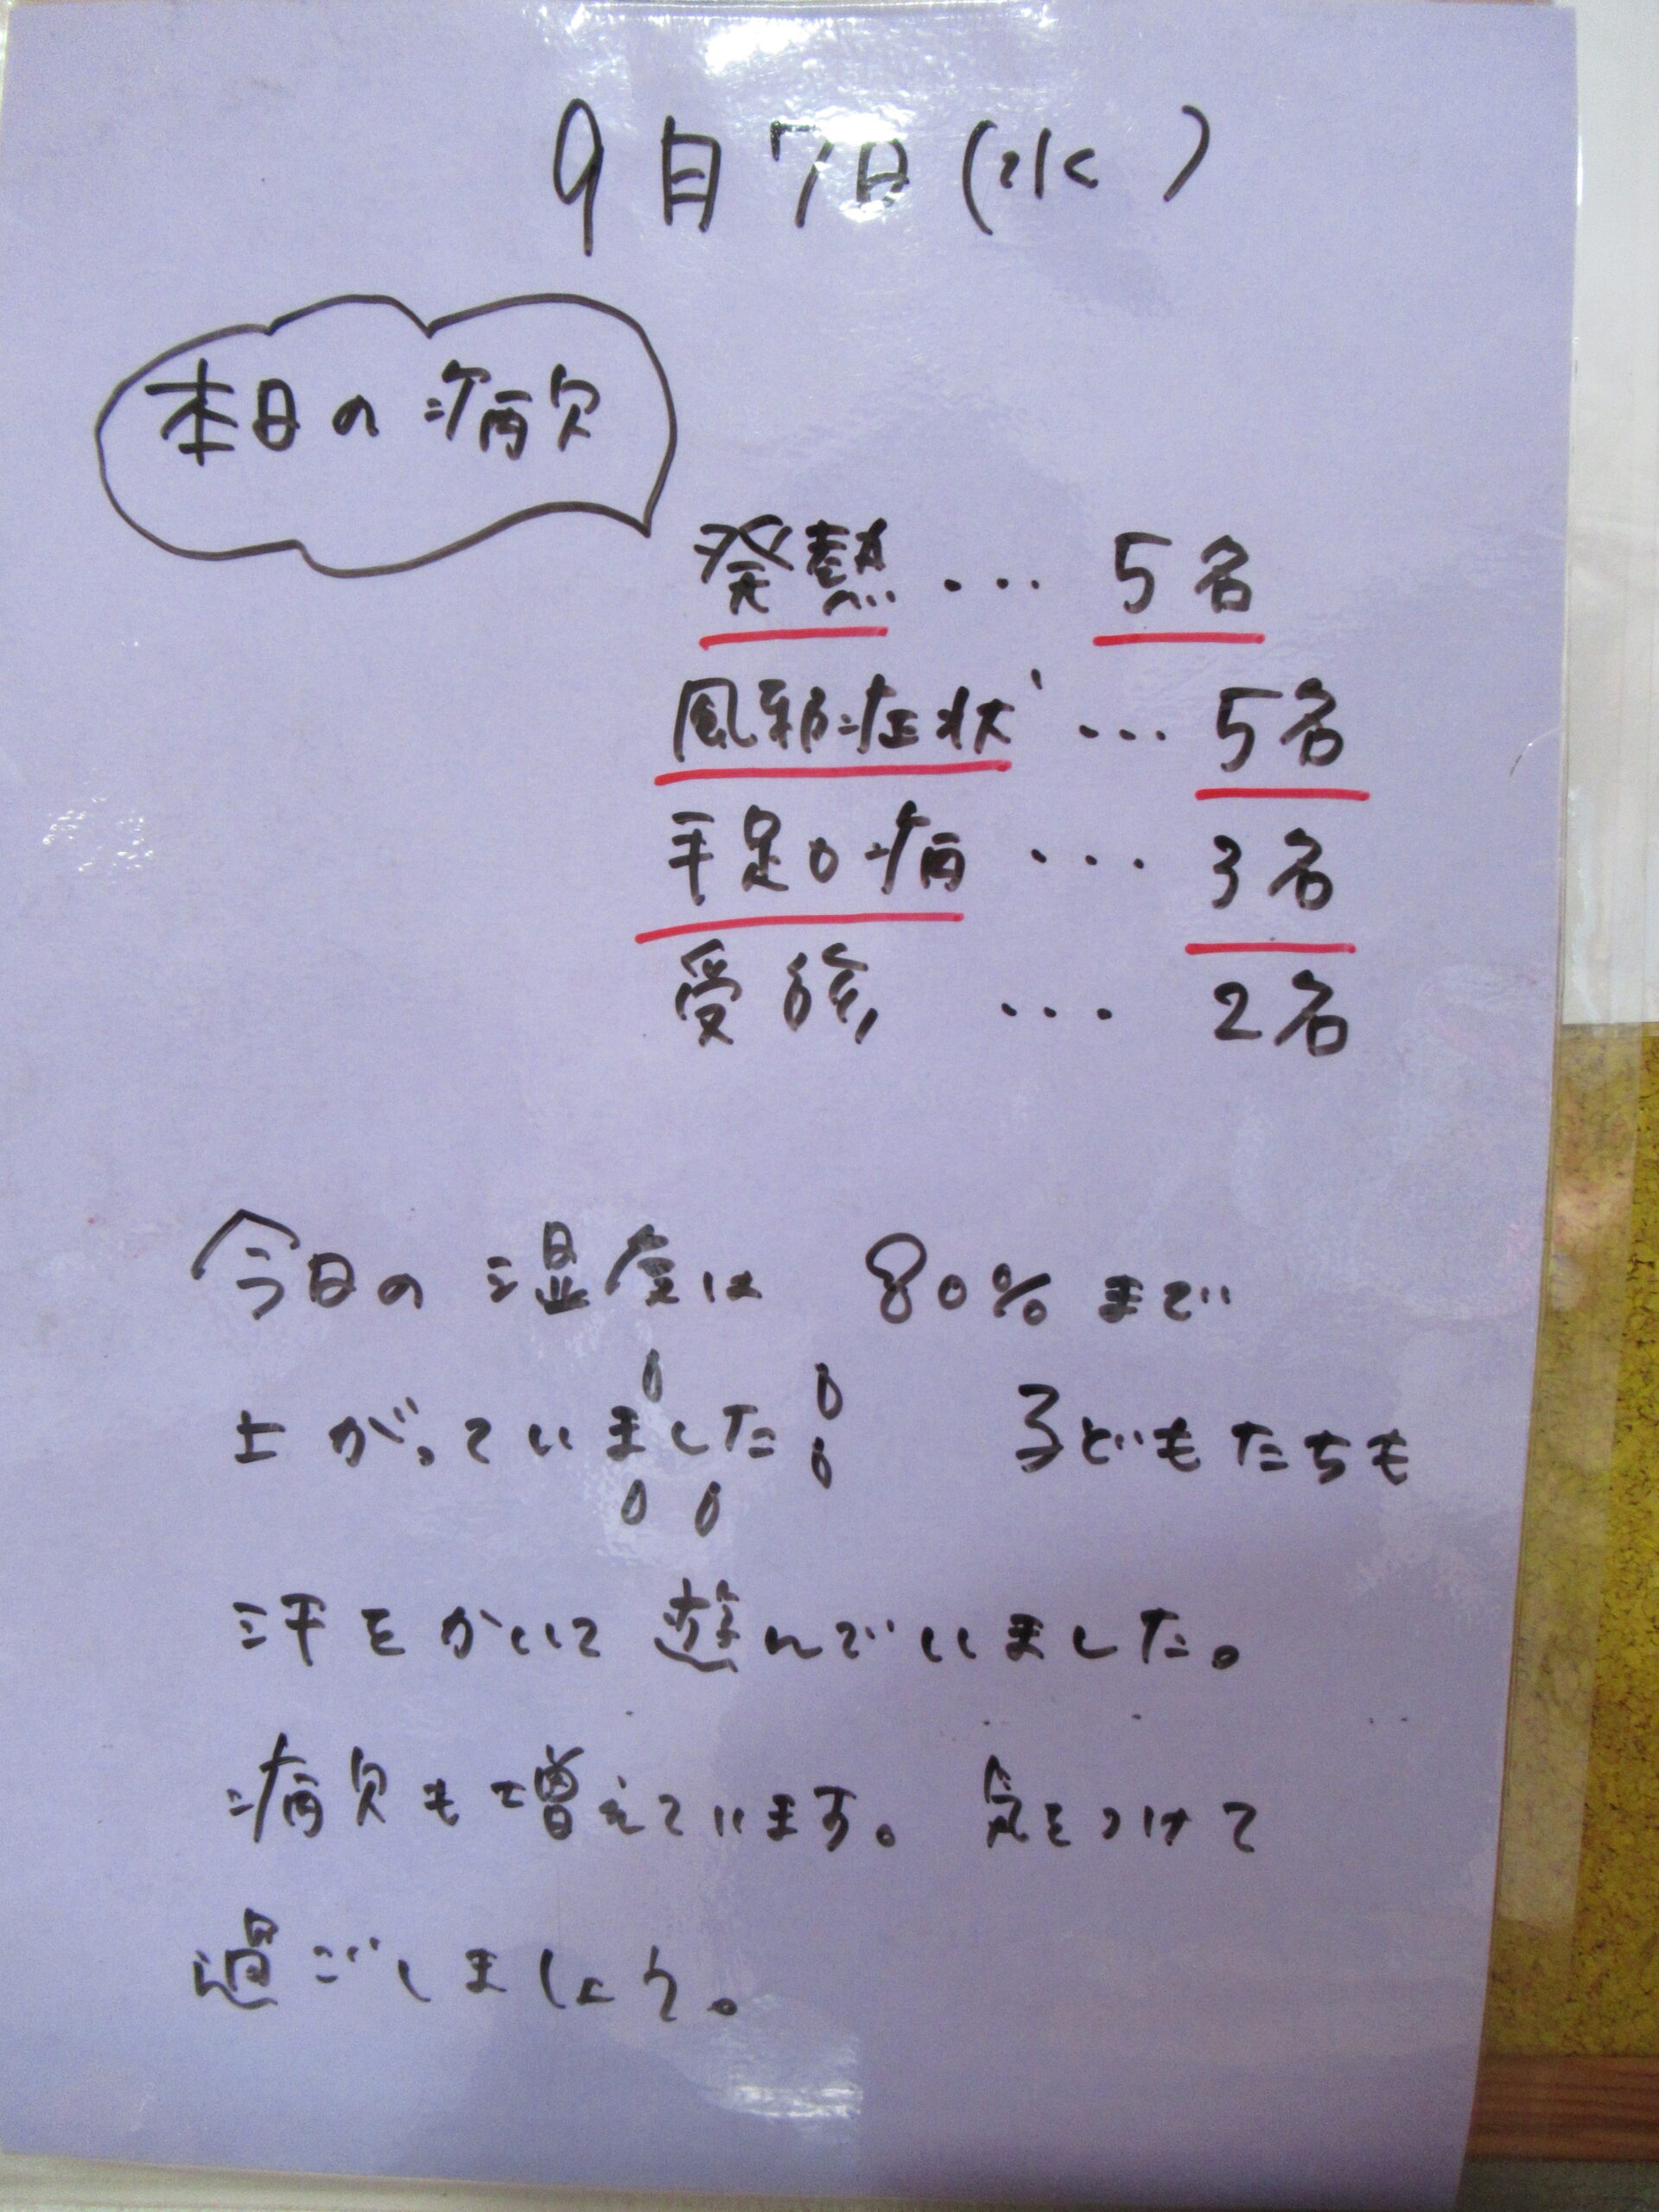 9月7日(水)
本日の病欠
発熱 ... 5名
風邪症状 ... 5名
手足口病 ... 3名
受診 ... 2名
今日の湿度は 80%まで
上がっていました 子どもたちも
汗をかいて遊んでいました。
病欠も増えています。気をつけて
過ごしましょう。